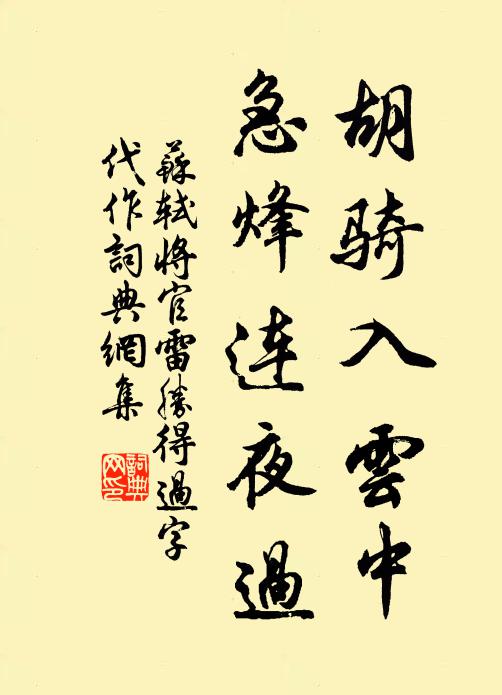 胡骑入雲中
急烽連夜過
蘇軾将官雷勝得過字
代作詞典網集
詞典網印